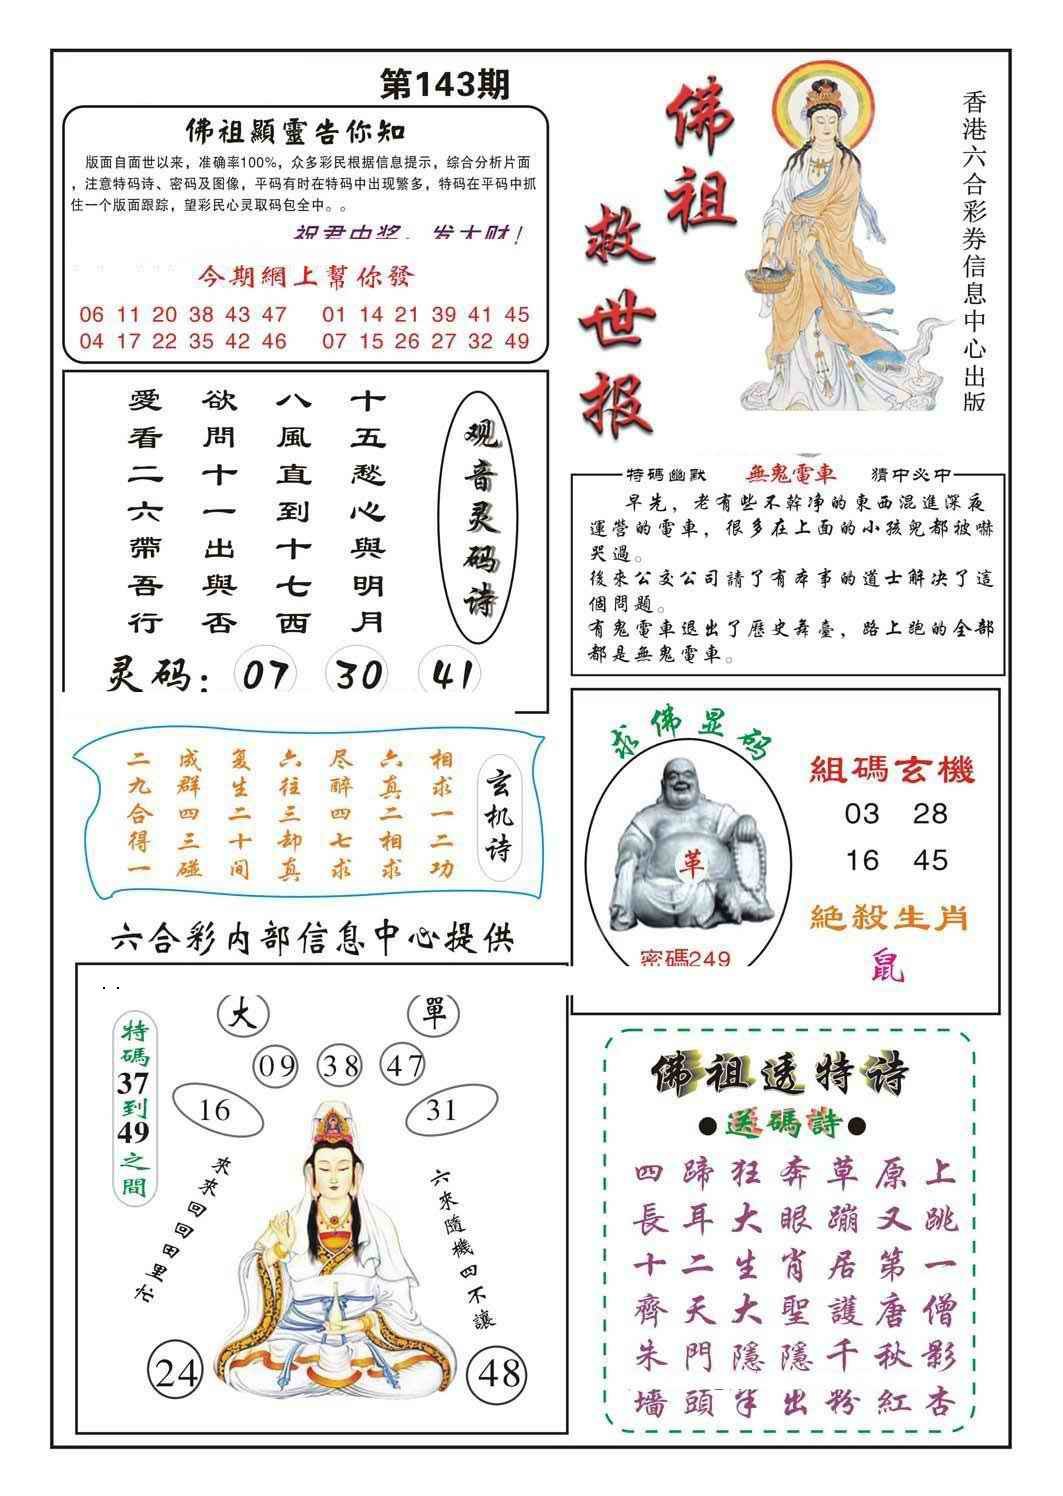 第143期
佛祖顯靈告你知
版面自面世以来，准确率100%，众多彩民根据信息提示，综合分析片面
，注意特码诗、密码及图像，平码有时在特码中出现繁多，特码在平码中抓
住一个版面跟踪，望彩民心灵取码包全中。。
祝君中奖，发大财！
今期網上幫你發
06 11 20 38 43 47 01 14 21 39 41 45
04 17 22 35 42 46 07 15 26 27 32 49
佛祖
救世报
香港六合彩券信息中心出版
观音灵码诗
十五愁心與明月
八風直到十七西
欲問十一出與否
愛看二六帶吾行
灵码：07 30 41
特碼幽默 無鬼電車 猜中必中
早先，老有些不幹净的東西混進深夜
運營的電車，很多在上面的小孩兒都被嚇
哭過。
後來公交公司請了有本事的道士解决了這
個問題。
有鬼電車退出了歷史舞臺，路上跑的全部
都是無鬼電車。
玄机诗
相求一二功
六真二相求
尽醉四七求
六往三却真
复生二十间
成群四三碰
二九合得一
求佛显码
革
密碼249
組碼玄機
03 28
16 45
絕殺生肖
鼠
六合彩内部信息中心提供
大 單
09 38 47
16 31
特碼37到49之間
來來回回田里忙
六來隨機四不讓
24 48
佛祖透特诗
●送碼詩●
四蹄狂奔草原上
長耳大眼蹦又跳
十二生肖居第一
齊天大聖護唐僧
朱門隱隱千秋影
墻頭半出粉紅杏